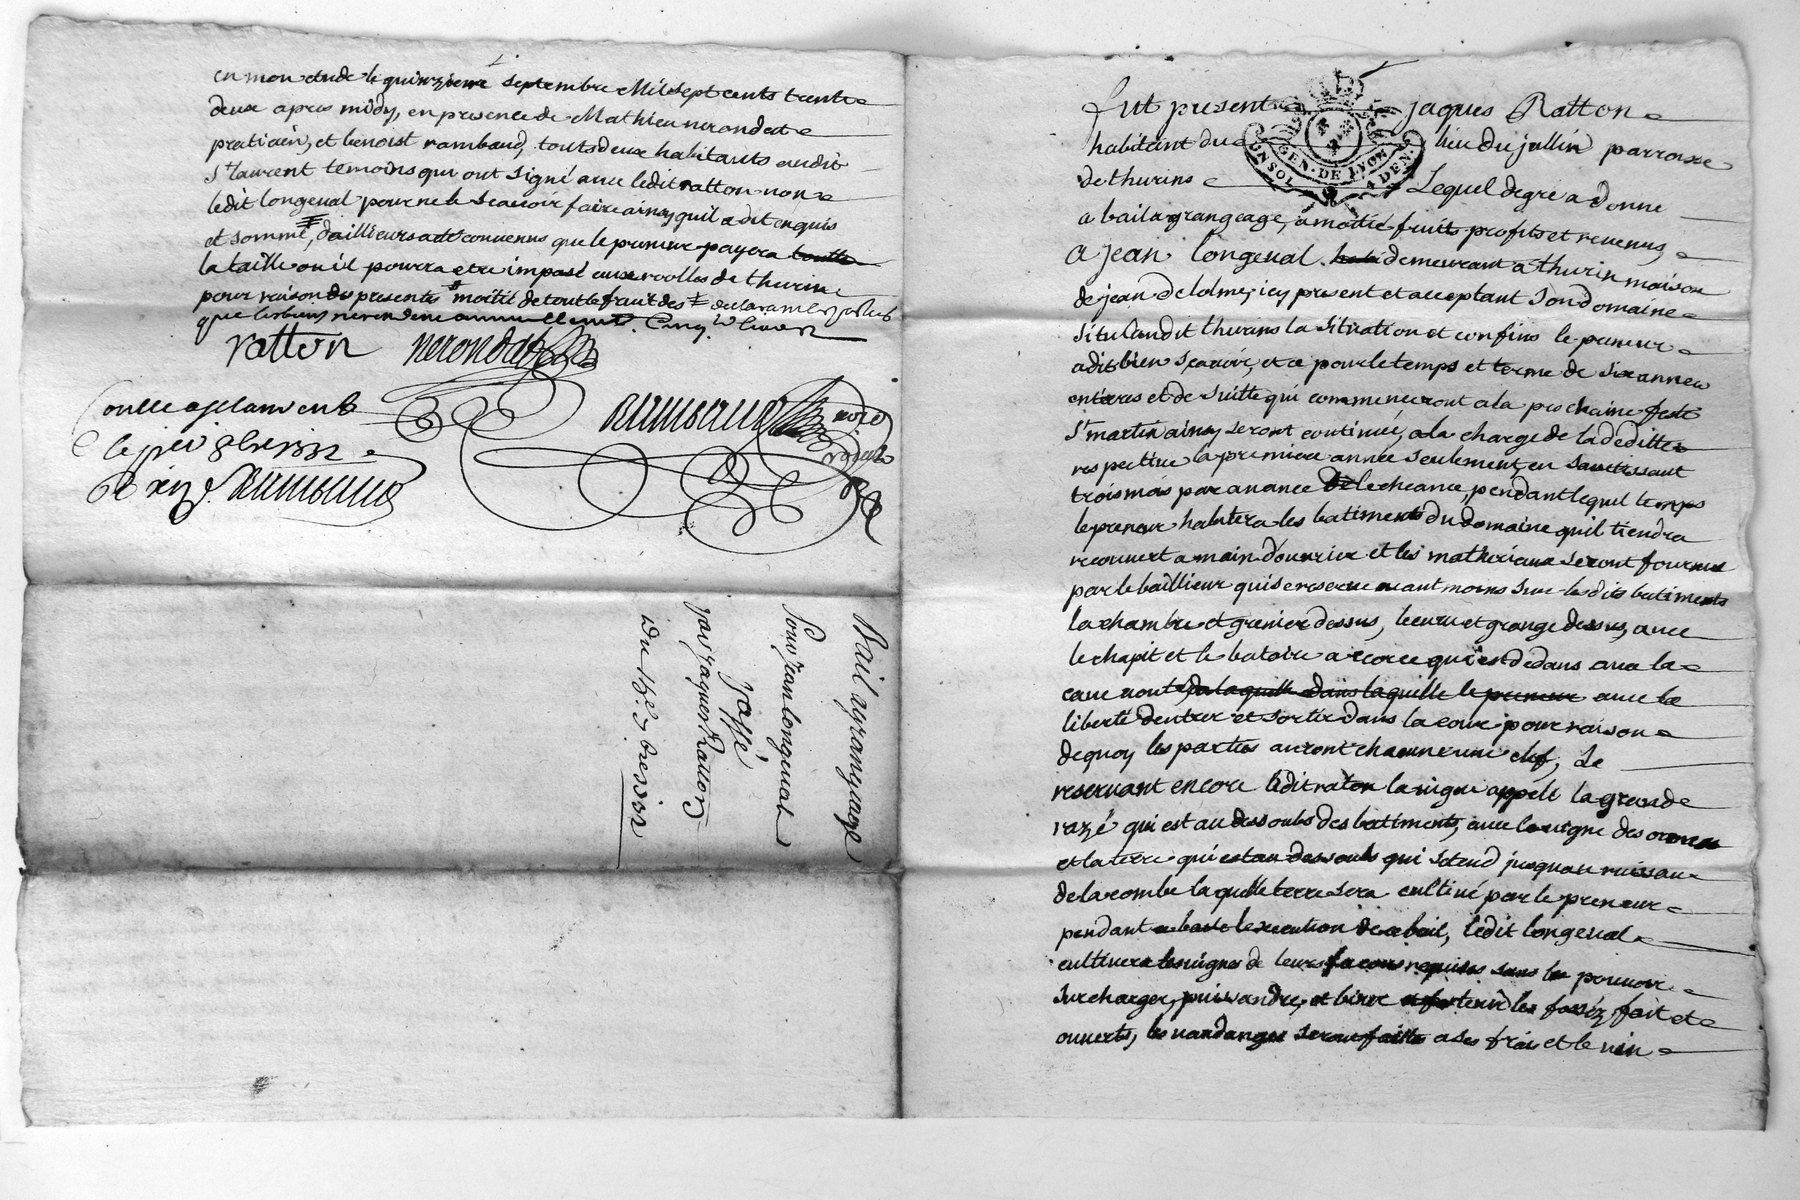 en mon etude le quinzieme septembre Mil sept cents trente
deux apres midy, en presence de Mathieu nerondat
praticien, et benoist rambaud, touts deux habitants audit
St laurent temoins qui ont signé avec ledit ratton non
ledit longeval pour ne le scavoir faire ainsy quil a dit enquis
et sommé, d'ailleurs a eté convenus que le preneur payera
la taille ou il pourra etre imposé aux roolles de thurin
pour raison des presentes moitié de tout le fruit des
que les biens annuellement. Cinq livres
ratton nerondat
rambaud
Controllé a St laurent
le
Rambaud
Bail a grangeage
Pour jean longeval
passé
par jaques Ratton
Du 15e 7bre 1732
Fut present jaques Ratton
habitant du lieu du jullin parroisse
de thurins Lequel de gré a donné
a bail a grangeage, a moitié fruits profits et revenus
a jean longeval demeurant a thurin maison
de jean delolme, icy present et acceptant son domaine
situé audit thurins la situation et confins le preneur
a dit bien scavoir, et ce pour le temps et terme de six années
entieres et de suitte qui commenceront a la prochaine feste
St martin ainsy seront continué, a la charge de la deditte
respective la premiere année seulement, en savertissant
trois mois par avance lecheance, pendant lequel temps
le preneur habitera les batiments du domaine quil tiendra
recouvert a main d'ouvrier et les matheriaux seront fournis
par le baillieur qui se reserve neantmoins sur lesdits batiments
la chambre et grenier dessus, lecurie et grange dessus, avec
le chapit et le batoire a ecorce qui est dedans avec la
cave voute, dans laquelle le preneur avec la
liberté dentrer et sortir dans la cour pour raison
de quoy les parties auront chacune une clef, Se
reservant encore ledit raton la vigne appellé la grande
razé qui est au dessoubs des batiments, avec la vigne des
et la terre qui est au dessoubs qui setend jusquau ruisseau
de la combe laquelle terre sera cultivé par le preneur
pendant lexecution de ce bail, ledit longeval
cultivera les vignes de leurs facons requises sans les pouvoir
surcharger, puissandre, et biner tenir les fossez fait et
ouverts, les vandanges seront faittes a ses frais et le vin
GEN. DE LYON
4 DEN.